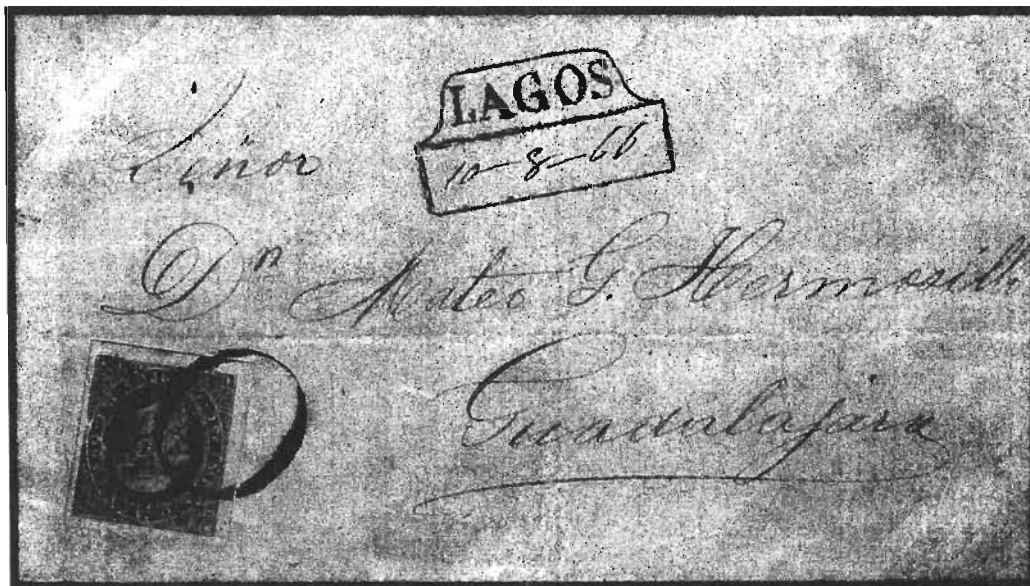 LAGOS
10-8-66
Señor
Dn Mateo G. Hermosillo
Guadalajara